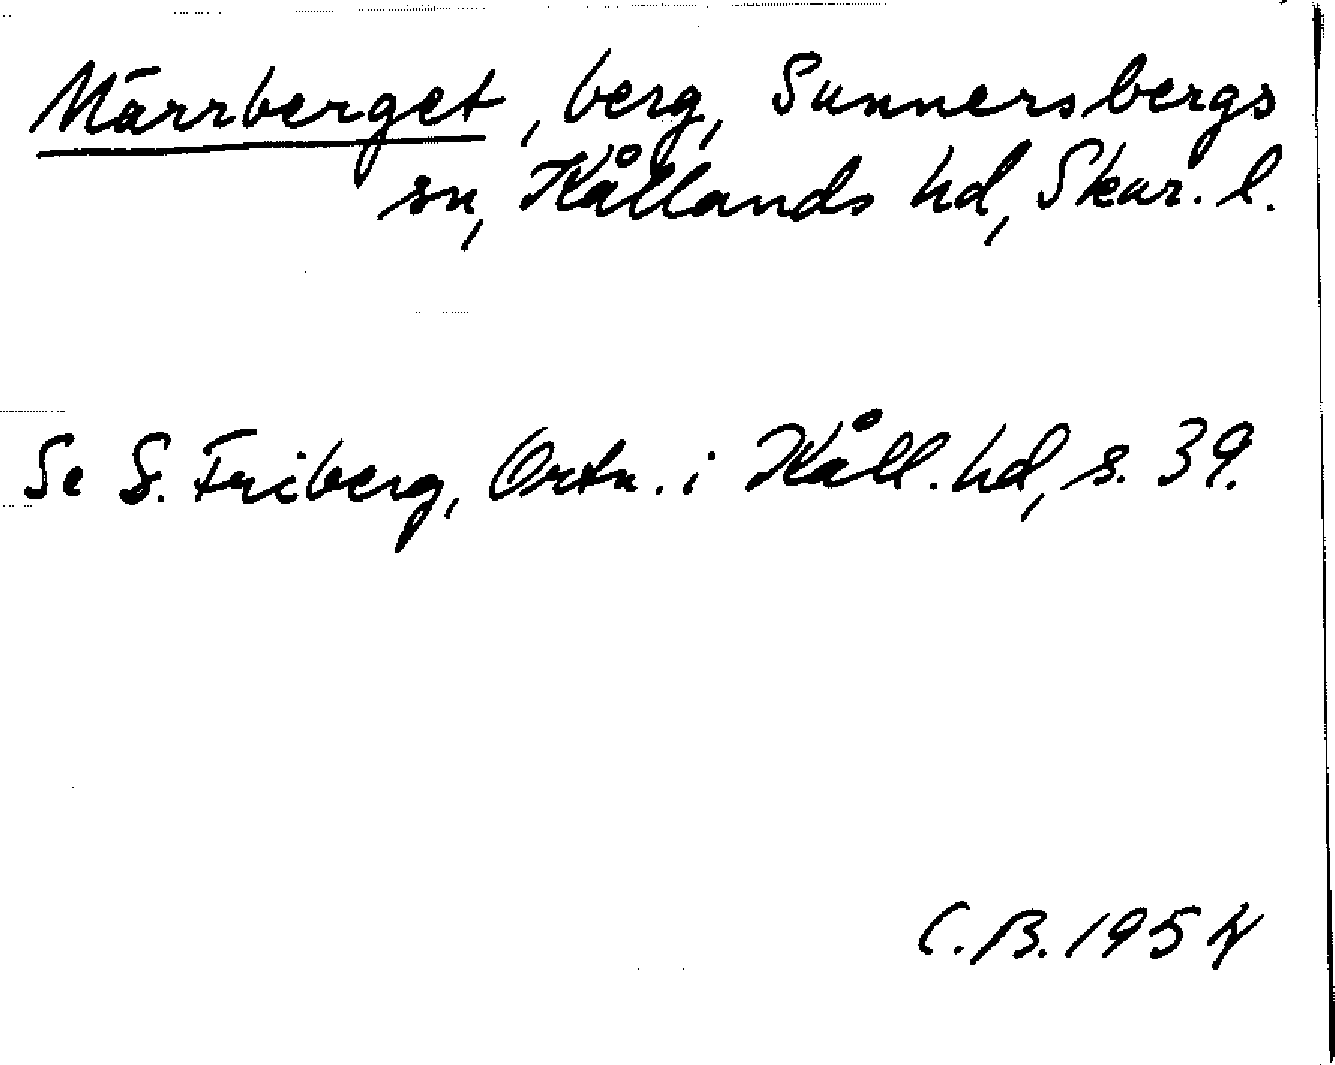 Märrberget, berg, Sunnersbergs
sn, Kållands hd, Skar. l.
Se S. Friberg, Ortn. i Kåll. hd, s. 39.
C.B. 1954